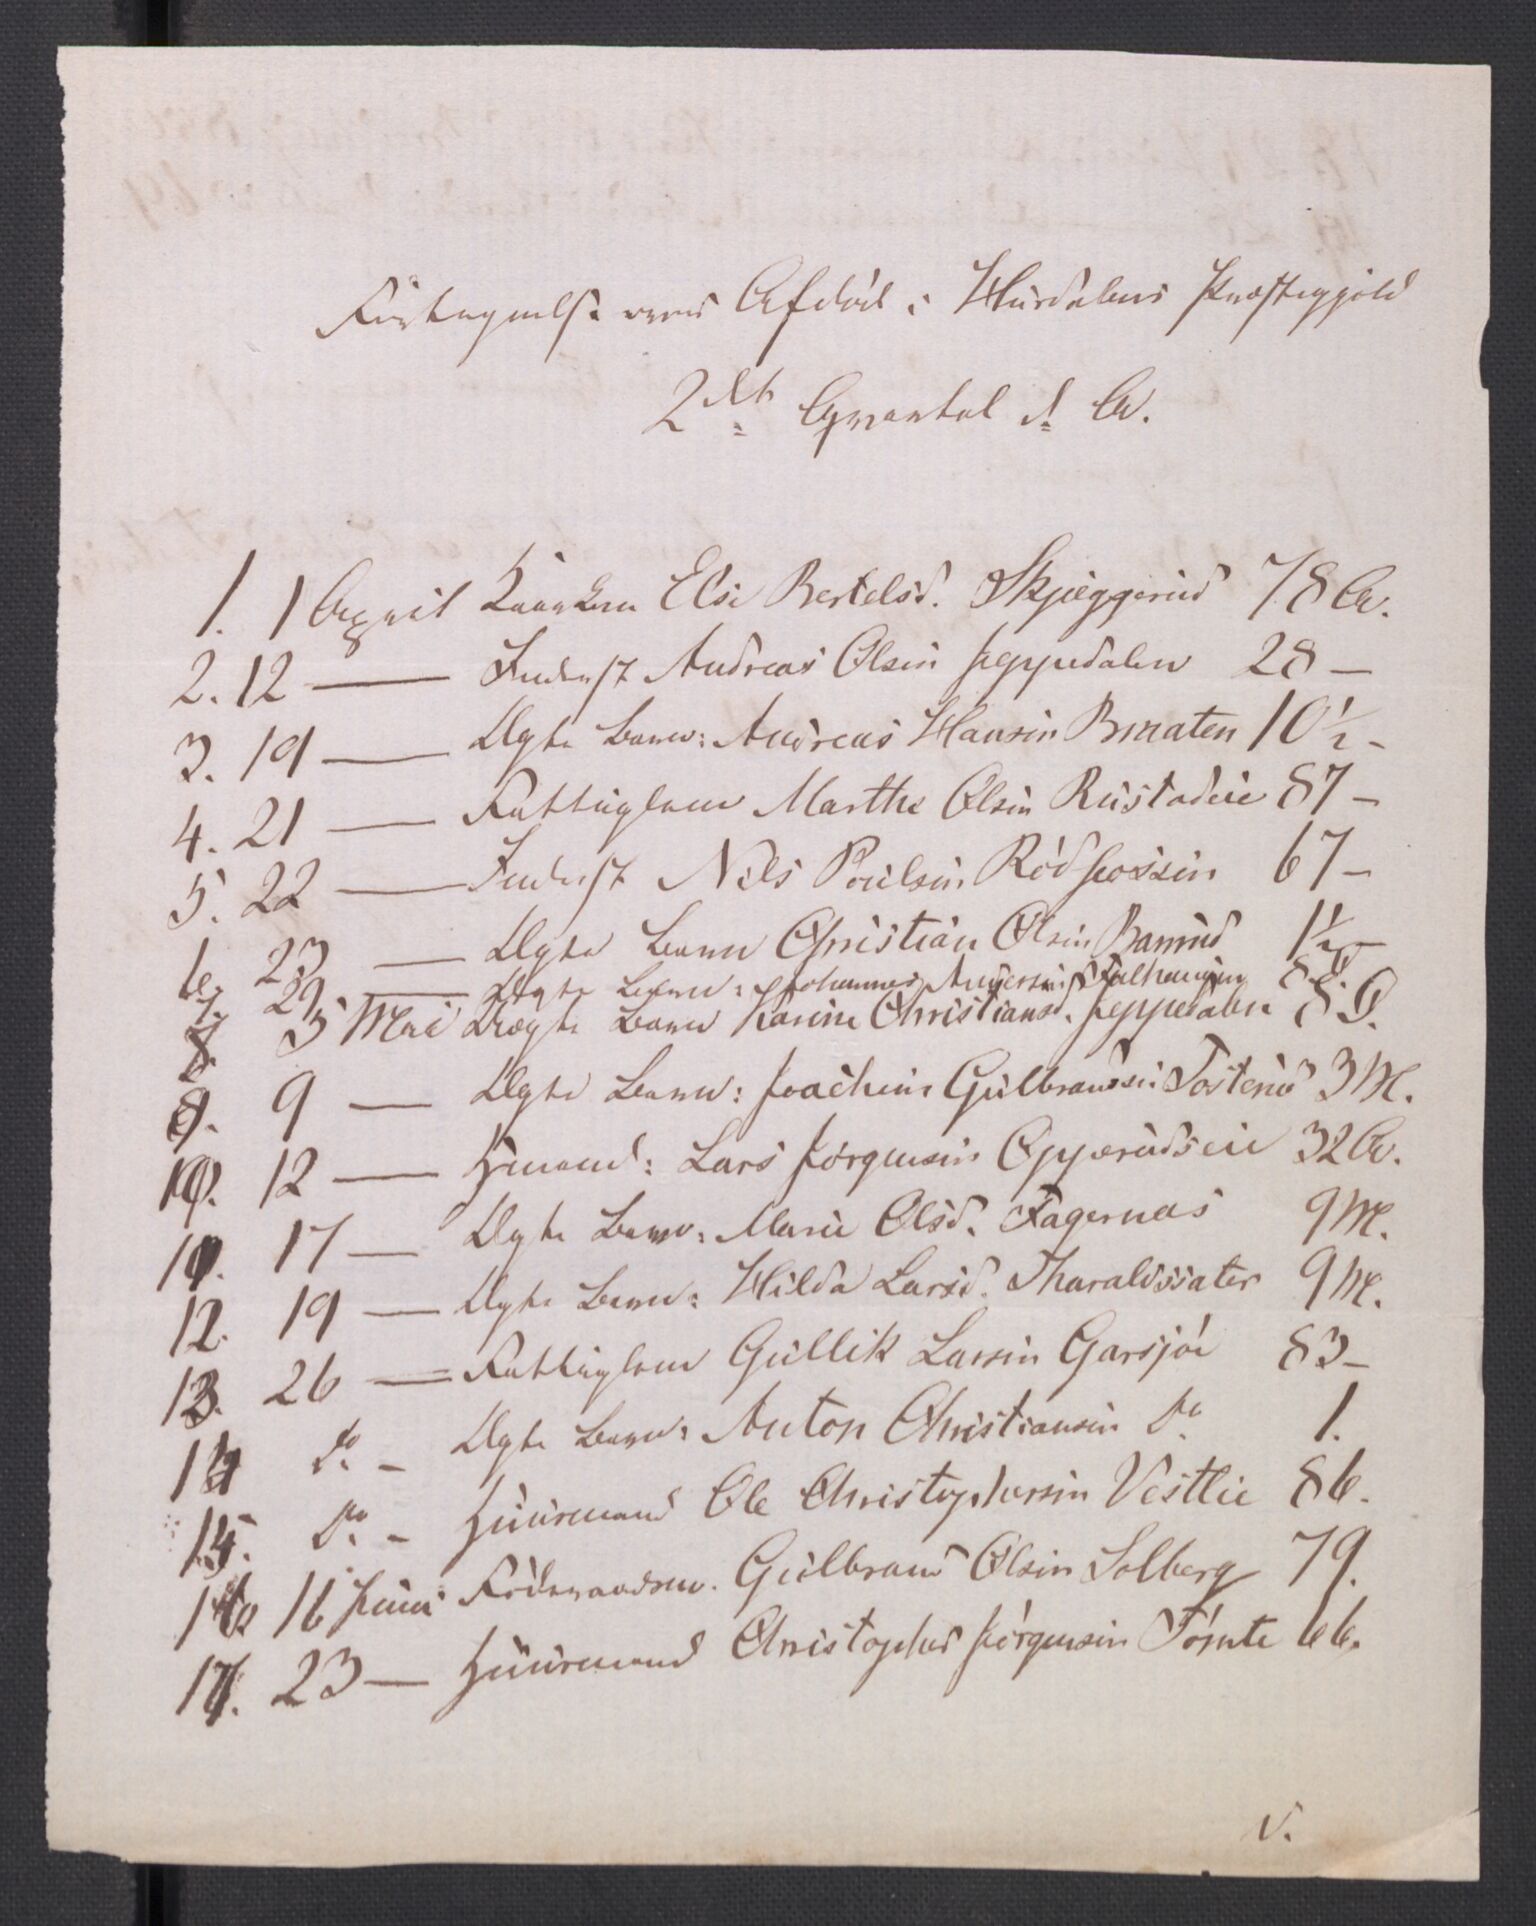 Fortegnelse over Afdöde i Hurdalens Præstegjeld
2det Qvartal d. A.
1. 1 April Elsi Bertelsd. Skjæggerud 78 A.
2. 12 — Inderst Andreas Olsen Jeppedalen 28 –
3. 19 — Ægte Barn: Andreas Hansen Braaten 10½ –
4. 21 — Fattiglem Marthe Olsen Rustadeie 87 –
5. 22 — Inderst Nils Poulsen Rödfossen 67 –
6. 23 — Ægte Barn Christian Olsen Barrud 1½ –
7. 29 — Ægte Barn: Johannes Andersen
8. 5 Mai Uægte Barn Karine Christiansd. Jeppedalen 8 D.
9. 9 — Ægte Barn: Joachim Gulbrandsen Tosterud 3 M.
10. 12 — Hmand: Lars Jörgensen Opperudseie 32 A.
11. 17 — Ægte Barn: Marie Olsd. Fagernæs 9 M.
12. 19 — Ægte Barn: Hilda Larsd. Tharaldssæter 9 M.
13. 26 — Fattiglem Gullik Larsen Garsjöe 83 –
14 do. – Ægte Barn: Anton Christiansen do. 1.
15. do. – Huusmand Ole Christophersen Vestlie 86.
16 16 Juni Föderaadsm. Gulbrand Olsen Solberg 79.
17. 23 — Huusmand Christopher Jörgensen Tömte 66.
V.